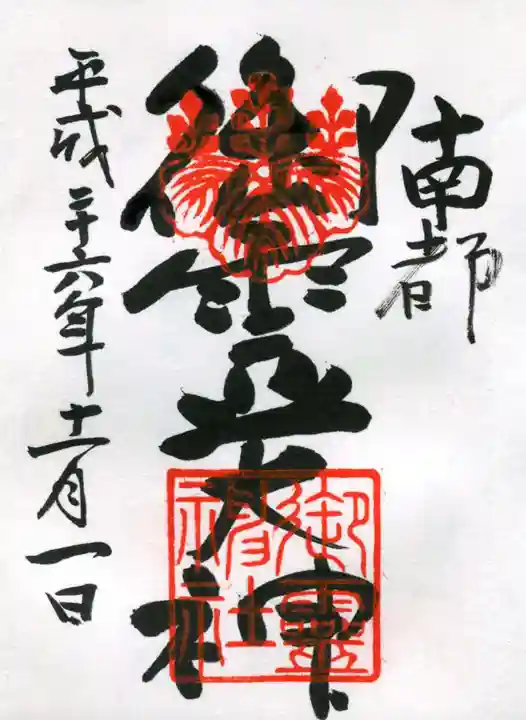 南都
御霊大神
御靈神社
平成二十六年十一月一日